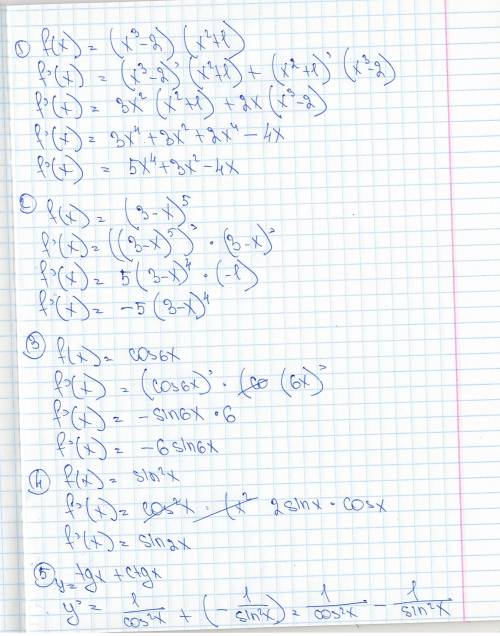 ① f(x) = (x³-2) (x²+1)
f'(x) = (x³-2)' (x²+1) + (x²+1)' (x³-2)
f'(x) = 3x² (x²+1) + 2x (x³-2)
f'(x) = 3x⁴ + 3x² + 2x⁴ - 4x
f'(x) = 5x⁴ + 3x² - 4x
② f(x) = (3-x)⁵
f'(x) = ((3-x)⁵)' • (3-x)'
f'(x) = 5 (3-x)⁴ • (-1)
f'(x) = -5 (3-x)⁴
③ f(x) = cos6x
f'(x) = (cos6x)' • (6x)'
f'(x) = -sin6x • 6
f'(x) = -6sin6x
④ f(x) = sin²x
f'(x) = 2sinx • cosx
f'(x) = sin2x
⑤ y = tgx + ctgx
y' = 1/cos²x + (- 1/sin²x) = 1/cos²x - 1/sin²x